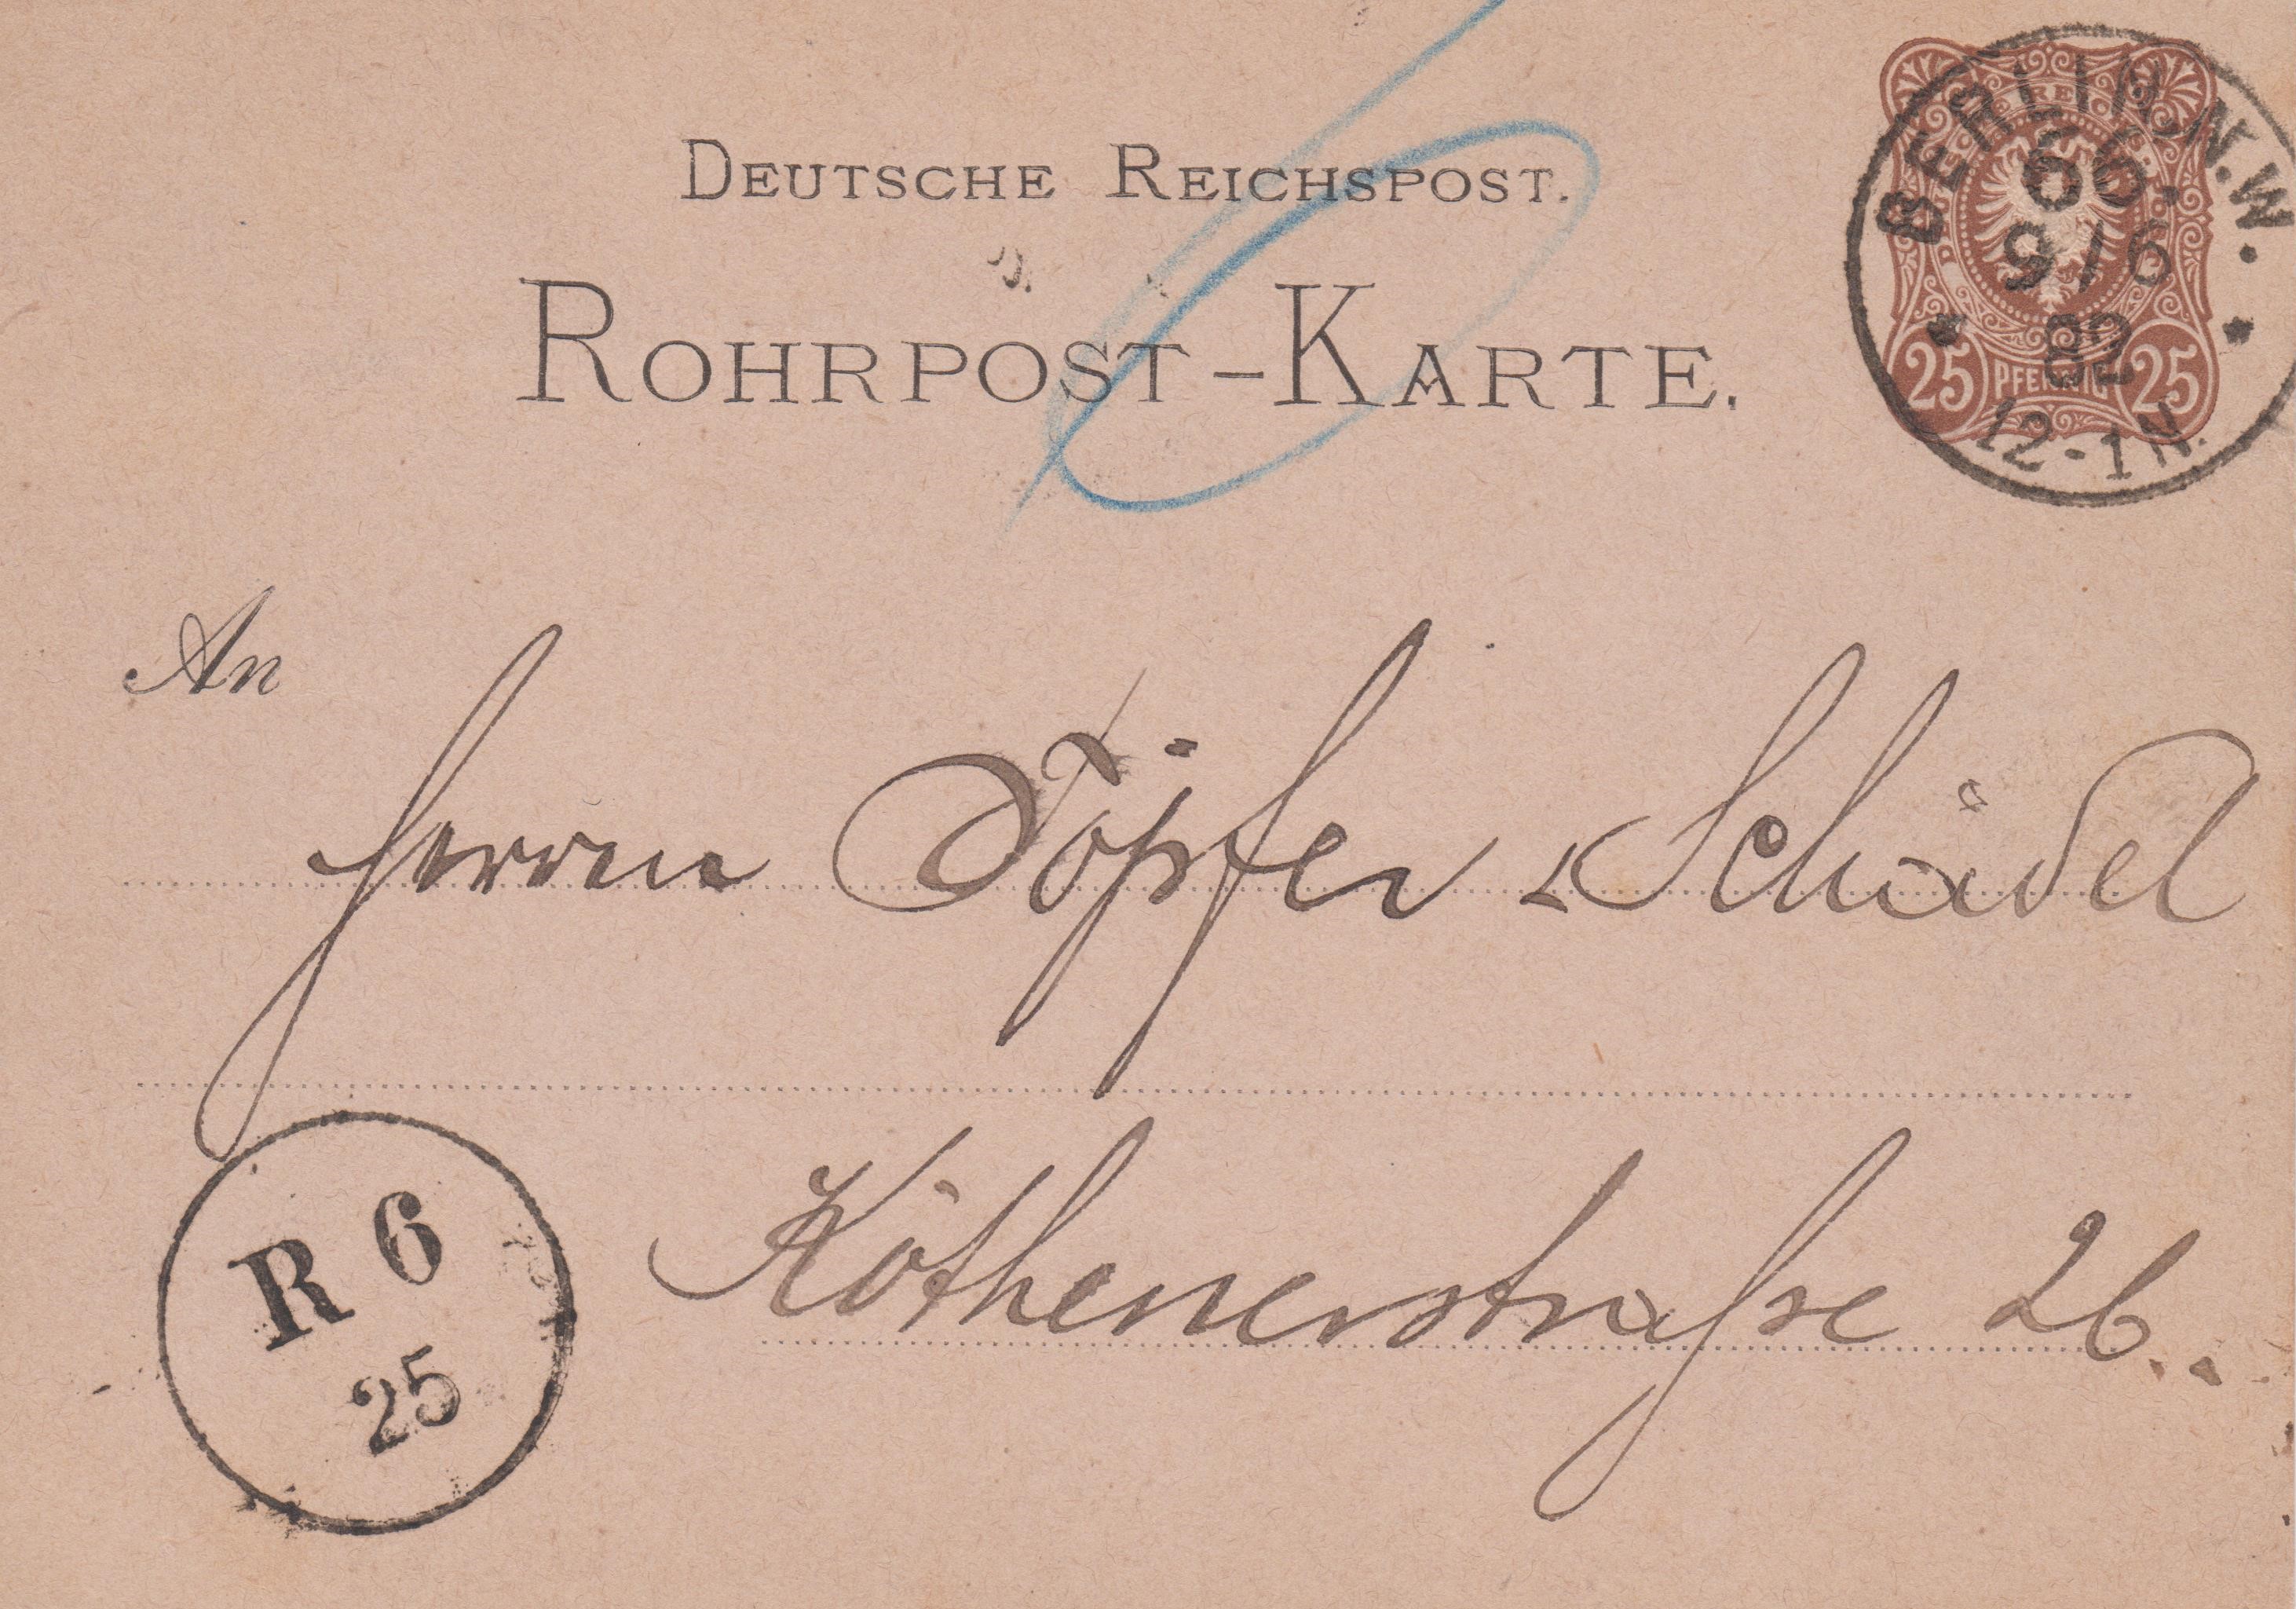 DEUTSCHE REICHSPOST.
ROHRPOST-KARTE.
BERLIN, N.W.
66.
9/6
82
12-1N.
25 PFENNIG 25
An
Herren Töpfer & Schädel
Köthenerstraße 26.
R 6
25